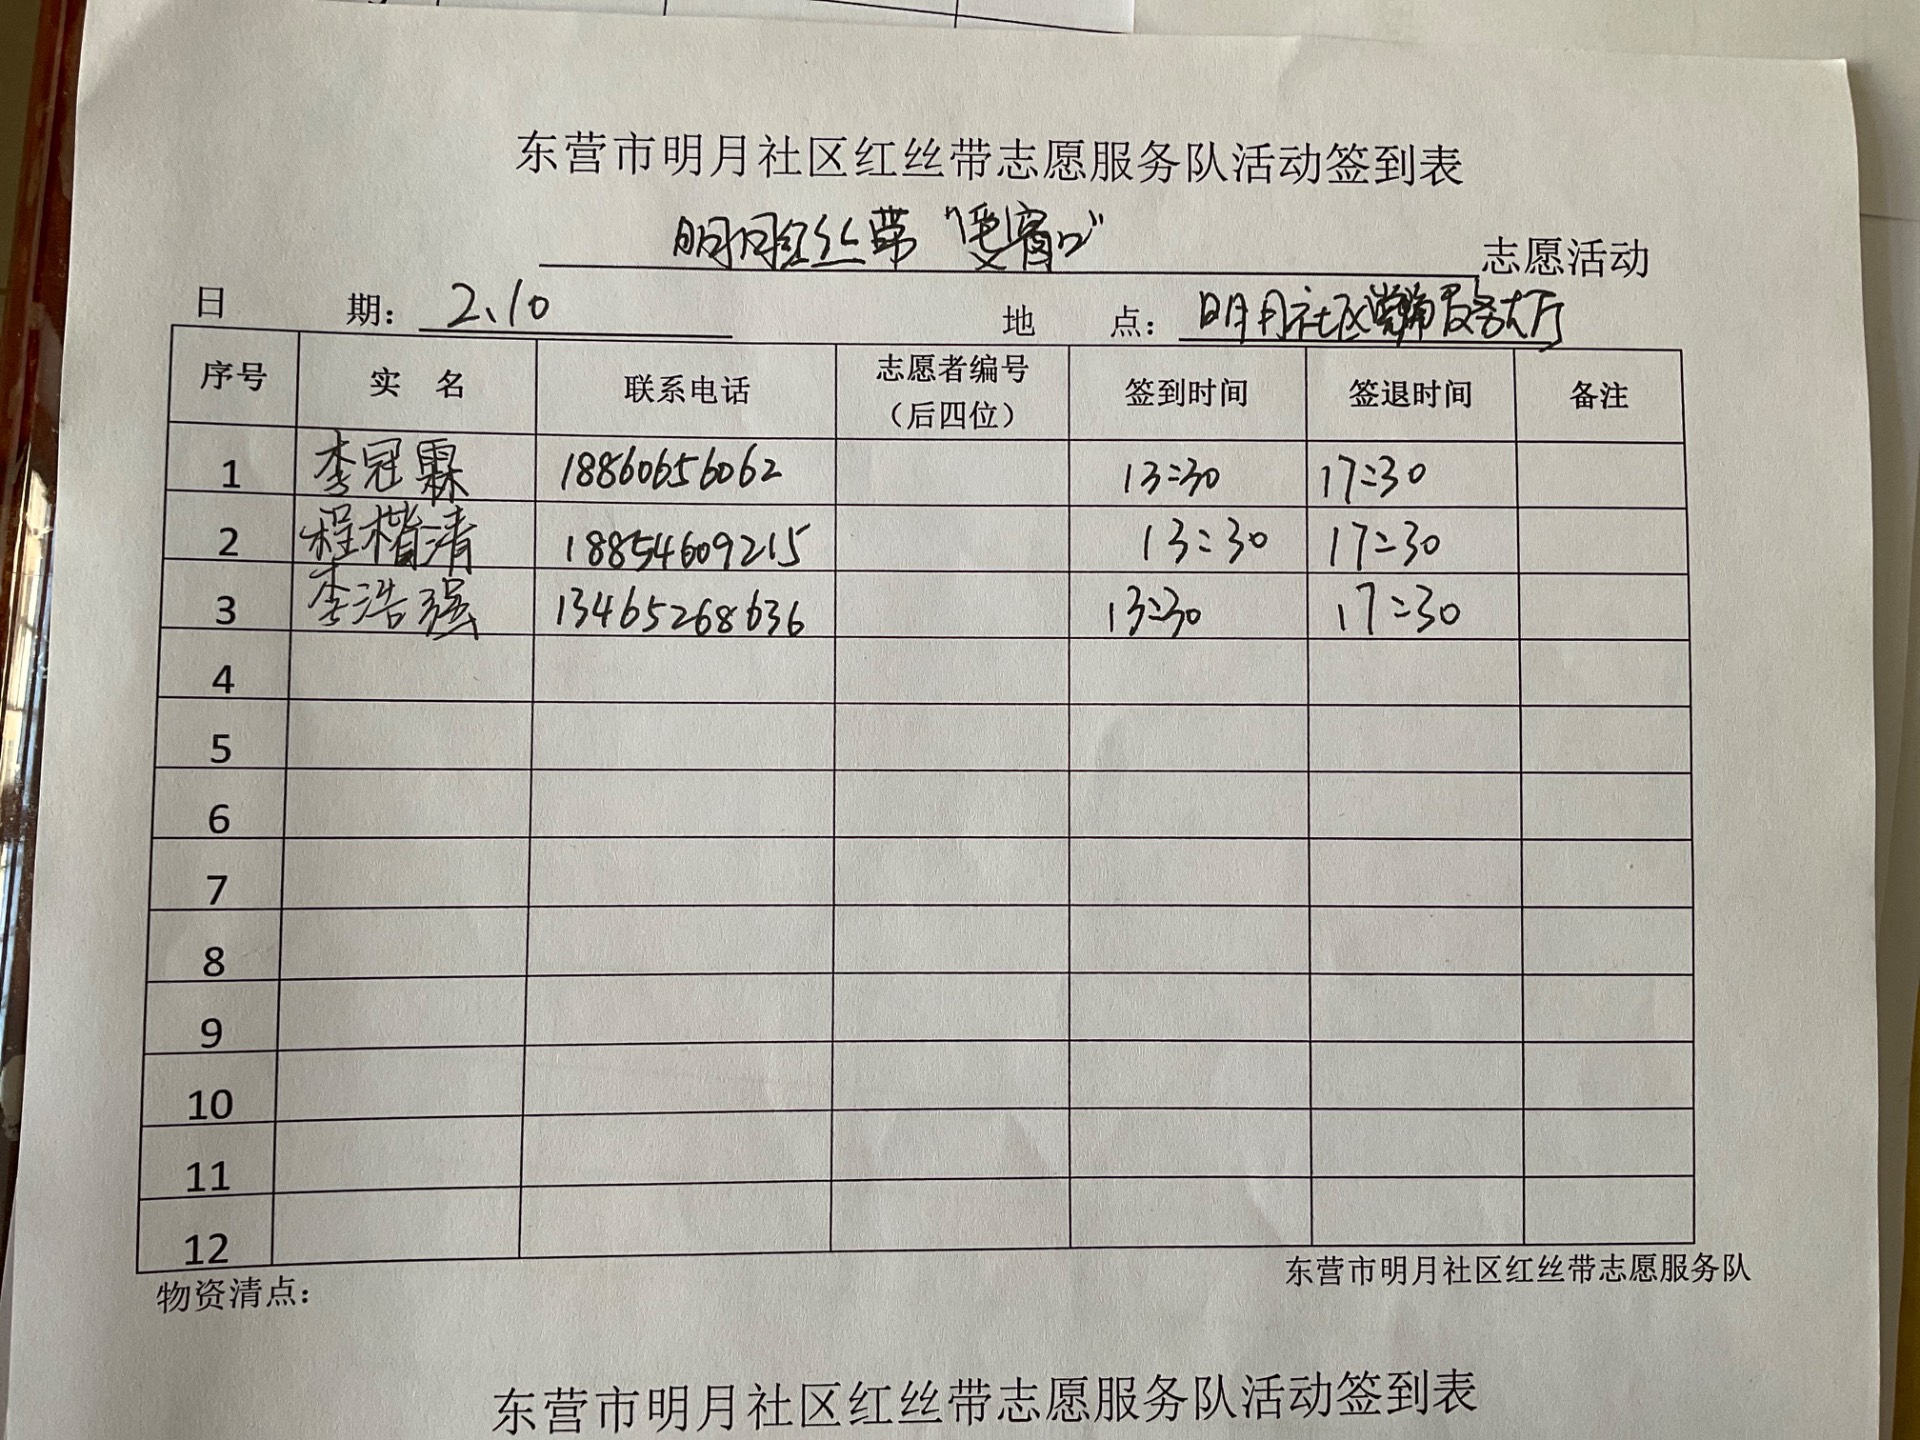 东营市明月社区红丝带志愿服务队活动签到表
明月红丝带 志愿活动
日 期：2、10 地 点：明月社区党群服务大厅
序号 实 名 联系电话 志愿者编号（后四位） 签到时间 签退时间 备注
1 李冠霖 18860656062 13:30 17:30
2 程楷清 18854609215 13:30 17:30
3 李浩强 13465268636 13:30 17:30
4
5
6
7
8
9
10
11
12
物资清点： 东营市明月社区红丝带志愿服务队
东营市明月社区红丝带志愿服务队活动签到表